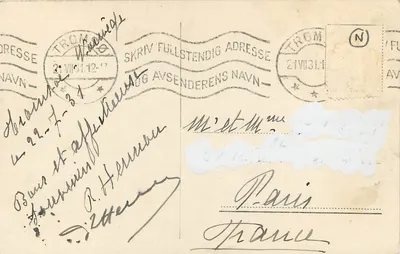 TROMSØ
21 VII 31.12-
SKRIV FULLSTENDIG ADRESSE
OG AVSENDERENS NAVN
TROM
21 VII 31.1
N
Tromsoe Norvège
le 22-7-31
Bons et affectueux
souvenirs
R. Herman
Mr et Mme
Paris
France